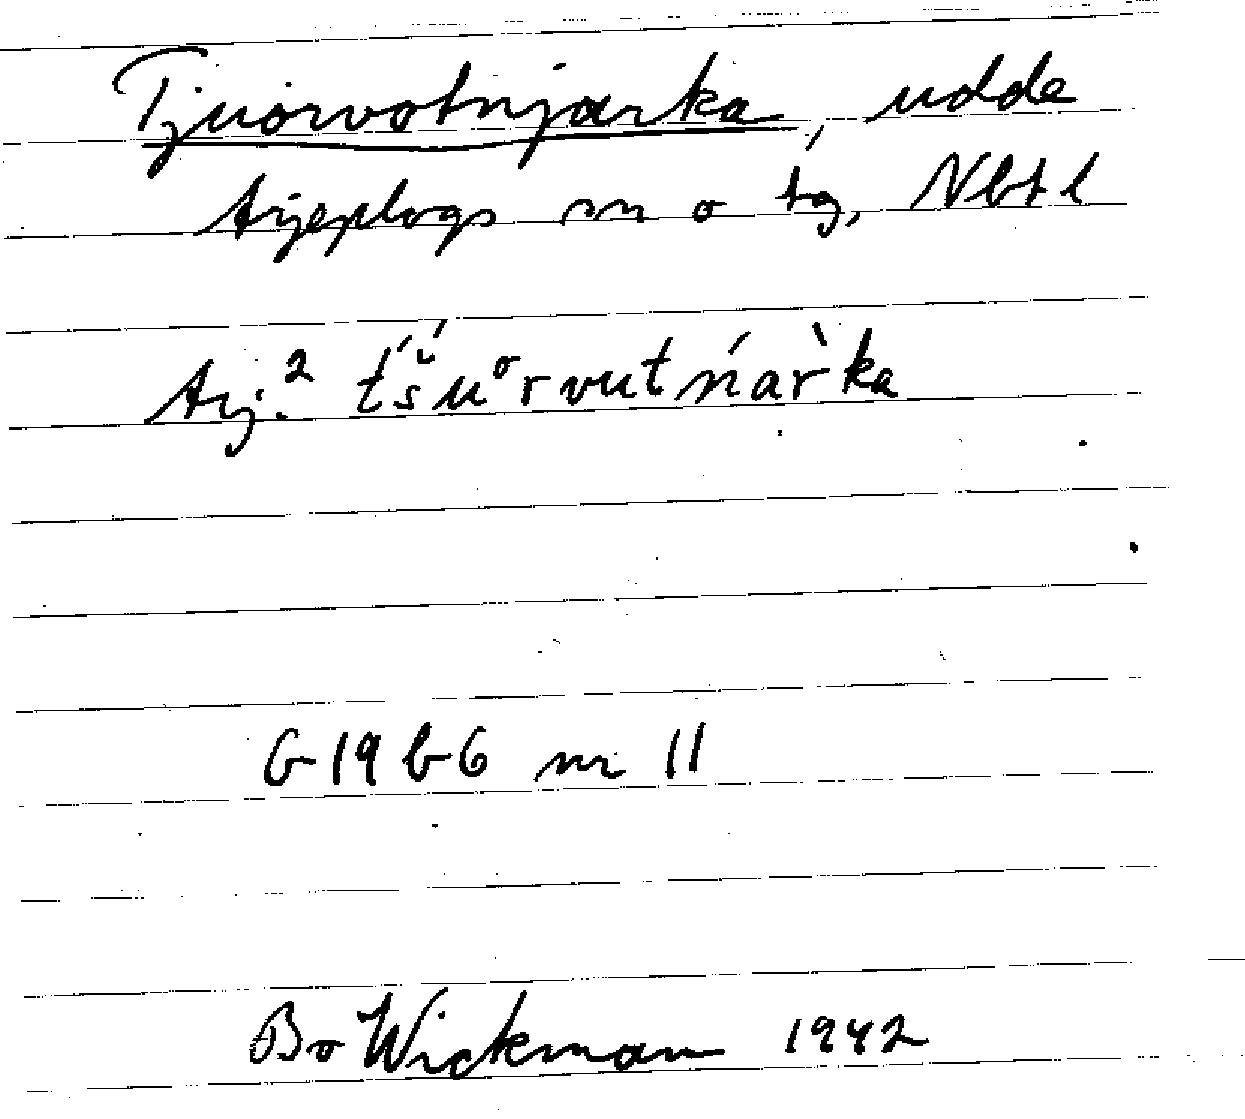 Tjuorvotnjarka, udde
Arjeplogs sn o tg, Nbtl
Arj.² t́š́uºrvutńar̀ka
G 19 b 6 nr 11
Bo Wickman 1942